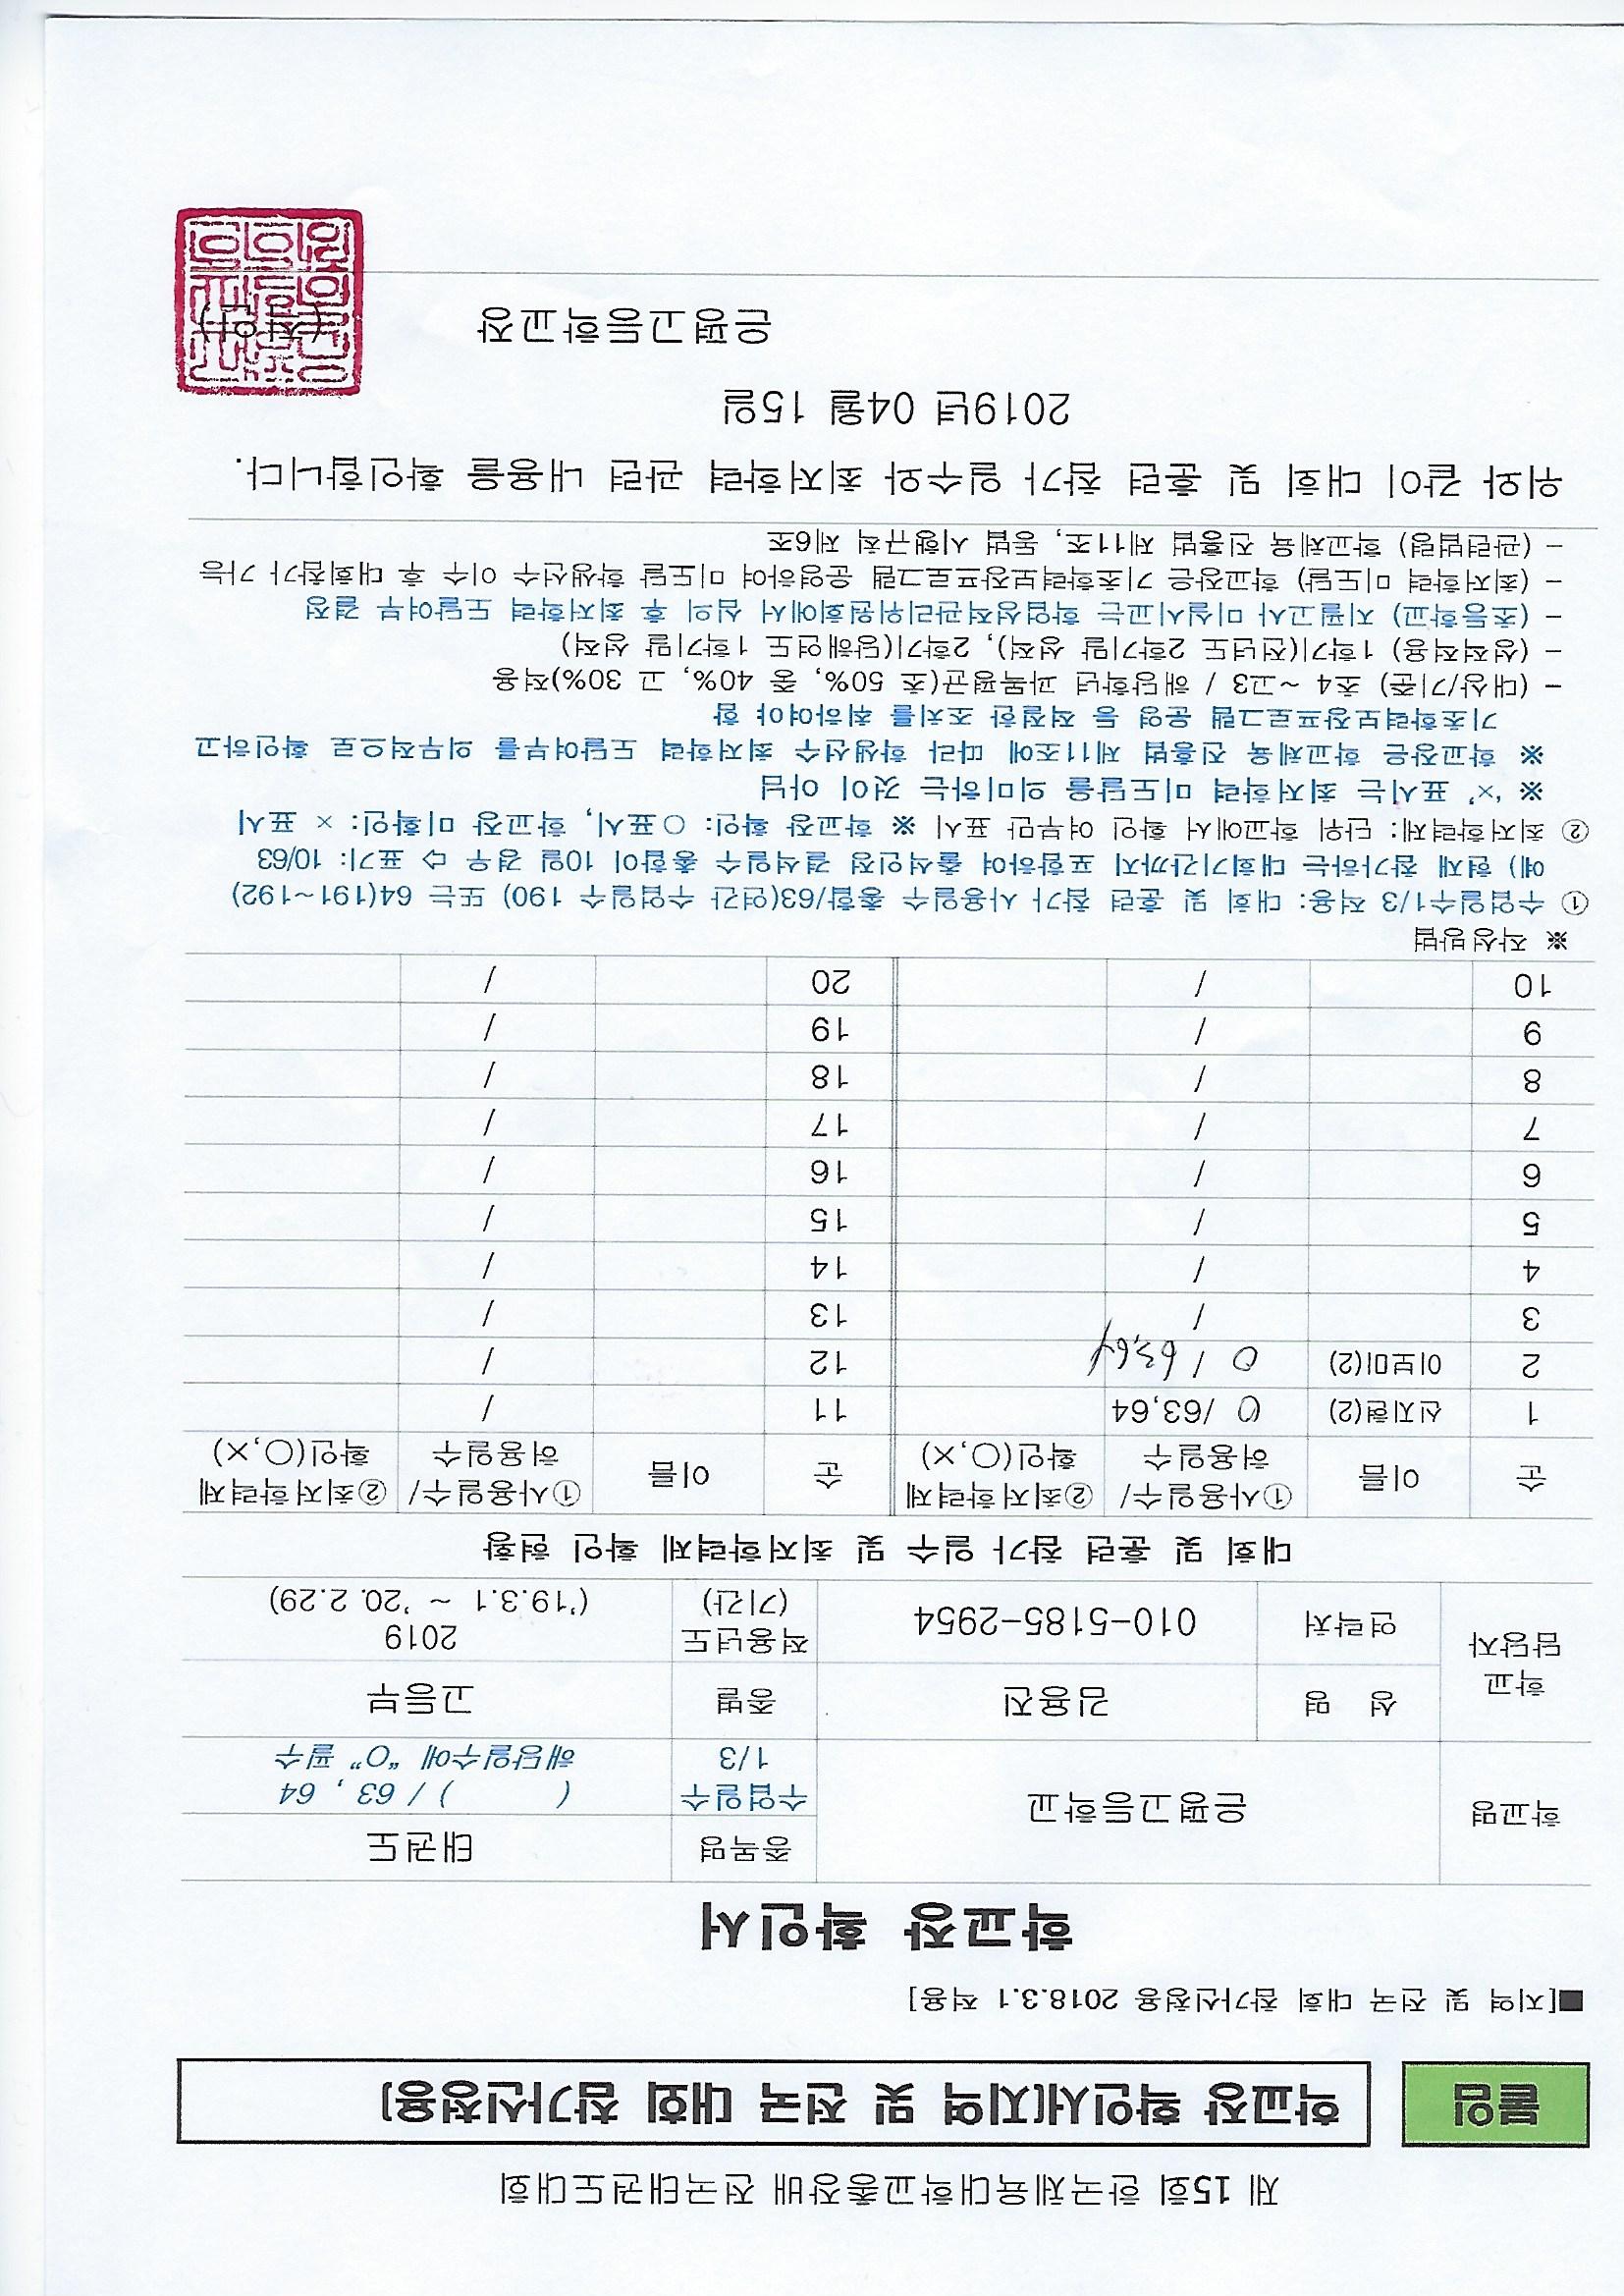 제 15회 한국체육대학교총장배 전국태권도대회
붙임
학교장 확인서[지역 및 전국 대회 참가신청용]
■[지역 및 전국 대회 참가신청용 2018.3.1 적용]
학교장 확인서
학교명 은평고등학교 종목명 태권도
수업일수 1/3 ( ) / 63 , 64
해당일수에 "O" 필수
학교 담당자 성 명 김용진 종별 고등부
연락처 010-5185-2954 적용년도 (기간) 2019
('19.3.1 ~ '20. 2.29)
대회 및 훈련 참가 일수 및 최저학력제 확인 현황
순 이름 ①사용일수/허용일수 ②최저학력제 확인(○,×) 순 이름 ①사용일수/허용일수 ②최저학력제 확인(○,×)
1 신지현(2) 0 /63,64 11 /
2 이보미(2) 0 / 63,64 12 /
3 / 13 /
4 / 14 /
5 / 15 /
6 / 16 /
7 / 17 /
8 / 18 /
9 / 19 /
10 / 20 /
※ 작성방법
① 수업일수1/3 적용: 대회 및 훈련 참가 사용일수 총합/63(연간 수업일수 190) 또는 64(191~192)
예) 현재 참가하는 대회기간까지 포함하여 출석인정 결석일수 총합이 10일 경우 ⇨ 표기: 10/63
② 최저학력제: 단위 학교에서 확인 여부만 표시 ※ 학교장 확인: ○표시, 학교장 미확인: × 표시
※ '×' 표시는 최저학력 미도달을 의미하는 것이 아님
※ 학교장은 학교체육 진흥법 제11조에 따라 학생선수 최저학력 도달여부를 의무적으로 확인하고
기초학력보장프로그램 운영 등 적절한 조치를 취하여야 함
- (대상/기준) 초4 ~고3 / 해당학년 과목평균(초 50%, 중 40%, 고 30%)적용
- (성적적용) 1학기(전년도 2학기말 성적), 2학기(당해연도 1학기말 성적)
- (초등학교) 지필고사 미실시교는 학업성적관리위원회에서 심의 후 최저학력 도달여부 결정
- (최저학력 미도달) 학교장은 기초학력보장프로그램 운영하여 미도달 학생선수 이수 후 대회참가 가능
- (관련법령) 학교체육 진흥법 제11조, 동법 시행규칙 제6조
위와 같이 대회 및 훈련 참가 일수와 최저학력 관련 내용을 확인합니다.
2019년 04월 15일
은평고등학교장 (직인)